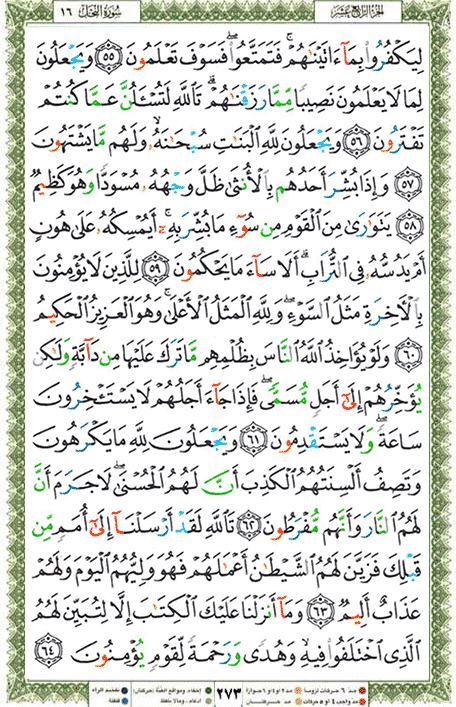 الجزء الرابع عشر سورة النحل ١٦
لِيَكْفُرُوا۟ بِمَآ ءَاتَيْنَٰهُمْ ۚ فَتَمَتَّعُوا۟ ۖ فَسَوْفَ تَعْلَمُونَ ٥٥ وَيَجْعَلُونَ
لِمَا لَا يَعْلَمُونَ نَصِيبًا مِّمَّا رَزَقْنَٰهُمْ ۗ تَٱللَّهِ لَتُسْـَٔلُنَّ عَمَّا كُنتُمْ
تَفْتَرُونَ ٥٦ وَيَجْعَلُونَ لِلَّهِ ٱلْبَنَٰتِ سُبْحَٰنَهُۥ ۙ وَلَهُم مَّا يَشْتَهُونَ
٥٧ وَإِذَا بُشِّرَ أَحَدُهُم بِٱلْأُنثَىٰ ظَلَّ وَجْهُهُۥ مُسْوَدًّا وَهُوَ كَظِيمٌ
٥٨ يَتَوَٰرَىٰ مِنَ ٱلْقَوْمِ مِن سُوٓءِ مَا بُشِّرَ بِهِۦٓ ۚ أَيُمْسِكُهُۥ عَلَىٰ هُونٍ
أَمْ يَدُسُّهُۥ فِى ٱلتُّرَابِ ۗ أَلَا سَآءَ مَا يَحْكُمُونَ ٥٩ لِلَّذِينَ لَا يُؤْمِنُونَ
بِٱلْءَاخِرَةِ مَثَلُ ٱلسَّوْءِ ۖ وَلِلَّهِ ٱلْمَثَلُ ٱلْأَعْلَىٰ ۚ وَهُوَ ٱلْعَزِيزُ ٱلْحَكِيمُ
٦٠ وَلَوْ يُؤَاخِذُ ٱللَّهُ ٱلنَّاسَ بِظُلْمِهِم مَّا تَرَكَ عَلَيْهَا مِن دَآبَّةٍ وَلَٰكِن
يُؤَخِّرُهُمْ إِلَىٰٓ أَجَلٍ مُّسَمًّى ۖ فَإِذَا جَآءَ أَجَلُهُمْ لَا يَسْتَـْٔخِرُونَ
سَاعَةً ۖ وَلَا يَسْتَقْدِمُونَ ٦١ وَيَجْعَلُونَ لِلَّهِ مَا يَكْرَهُونَ
وَتَصِفُ أَلْسِنَتُهُمُ ٱلْكَذِبَ أَنَّ لَهُمُ ٱلْحُسْنَىٰ ۖ لَا جَرَمَ أَنَّ
لَهُمُ ٱلنَّارَ وَأَنَّهُم مُّفْرَطُونَ ٦٢ تَٱللَّهِ لَقَدْ أَرْسَلْنَآ إِلَىٰٓ أُمَمٍ مِّن
قَبْلِكَ فَزَيَّنَ لَهُمُ ٱلشَّيْطَٰنُ أَعْمَٰلَهُمْ فَهُوَ وَلِيُّهُمُ ٱلْيَوْمَ وَلَهُمْ
عَذَابٌ أَلِيمٌ ٦٣ وَمَآ أَنزَلْنَا عَلَيْكَ ٱلْكِتَٰبَ إِلَّا لِتُبَيِّنَ لَهُمُ
ٱلَّذِى ٱخْتَلَفُوا۟ فِيهِ ۙ وَهُدًى وَرَحْمَةً لِّقَوْمٍ يُؤْمِنُونَ ٦٤
مد ٦ حركات لزوماً مد ٢ أو ٤ أو ٦ جوازاً ٢٧٣ إخفاء، ومواقع الغنة (حركتان) تفخيم الراء
مد واجب ٤ أو ٥ حركات مد حركتان إدغام، وما لا يلفظ قلقلة